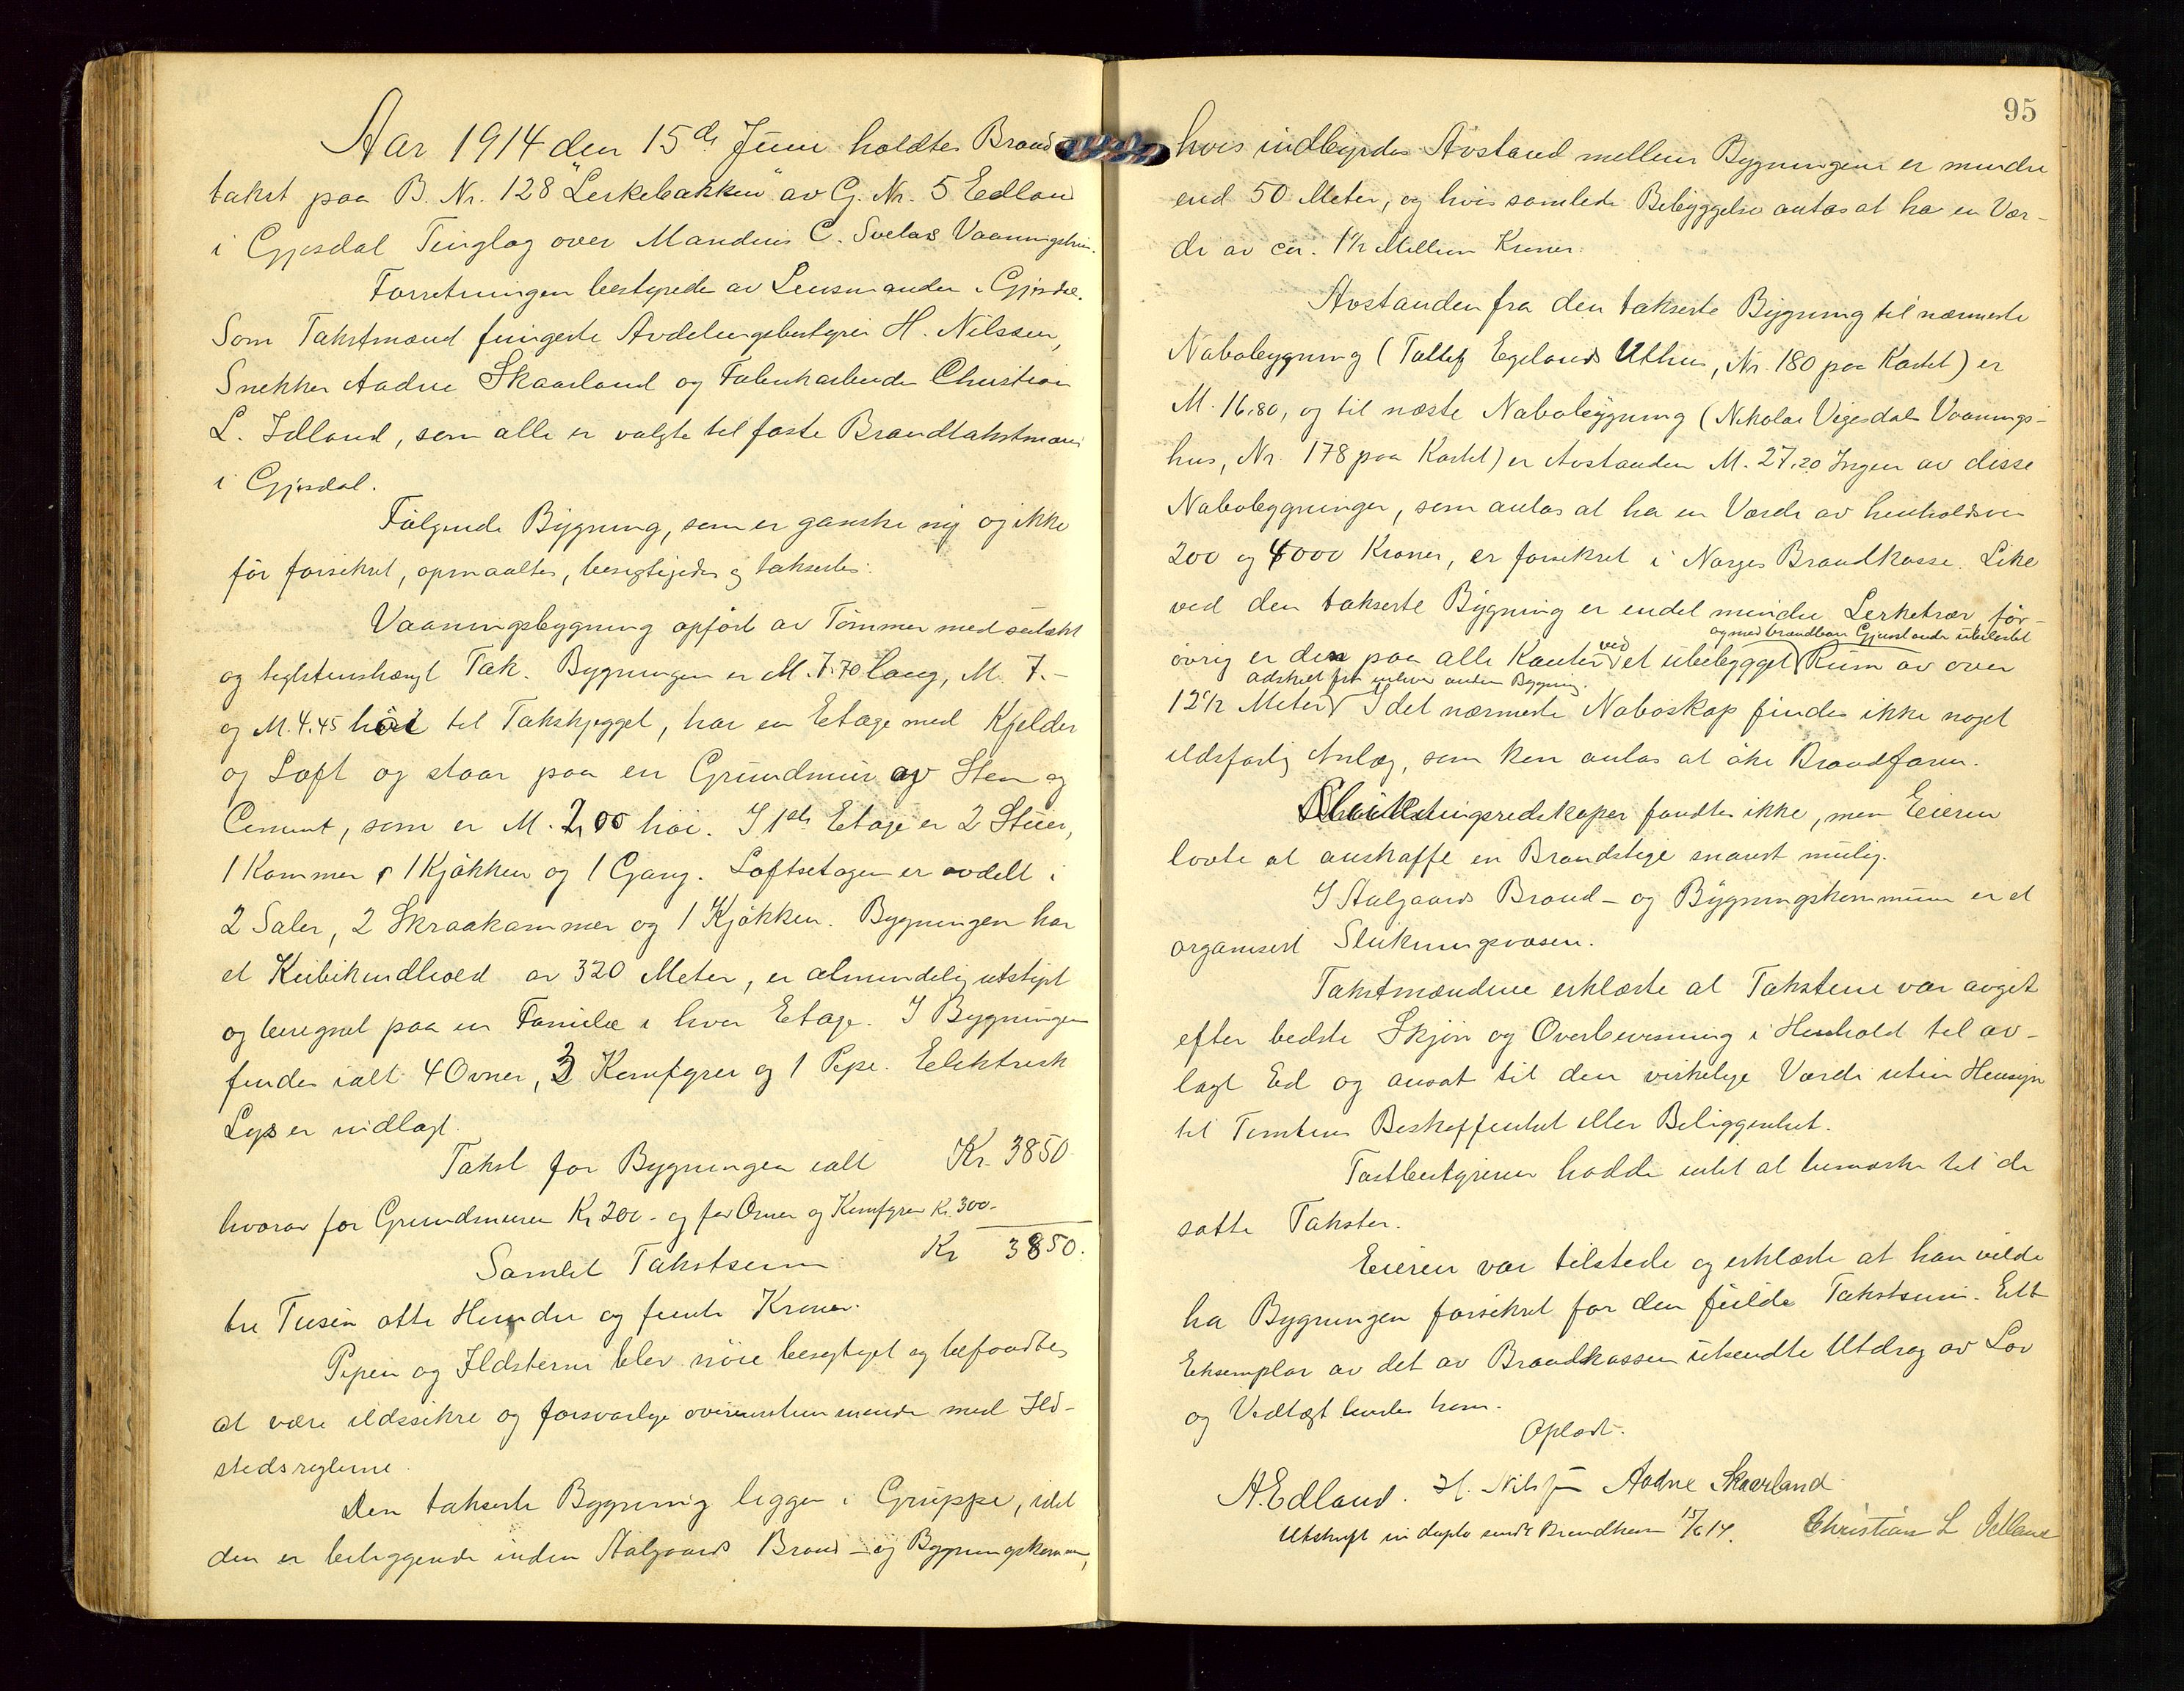 Aar 1914 den 15de Juni holdtes Brand-
takst paa B. Nr. 128 "Lerkebakken" av G. Nr. 5 Edland
i Gjesdal Tinglag over Mandius C. Svelas Vaaningshus.
Forretningen bestyredes av Lensmanden i Gjesdal.
Som Takstmænd fungerte Avdelingsbestyrer H. Nilssen,
Snekker Aadne Skaarland og Fabrikarbeider Christian
L. Idland, som alle er valgte til faste Brandtakstmænd
i Gjesdal.
Følgende Bygning, som er ganske ny og ikke
før forsikret, opmaaltes, besigtigedes og takseertes:
Vaaningsbygning opført av Tømmer med
og teglstenshængt Tak. Bygningen er M. 7.70 lang, M. 7.-
og M. 4.45 høi til Takskjegget, har en Etage med Kjelder
og Loft og staar paa en Grundmur av Sten og
Cement, som er M. 2,00 høi. I 1ste Etage er 2 Stuer,
1 Kammer, 1 Kjøkken og 1 Gang. Loftsetagen er avdelt i
2 Saler, 2 Skraakammer og 1 Kjøkken. Bygningen har
et Kubikindhold av 320 Meter, er almindelig utstyrt
og beregnet paa en Familie i hver Etage. I Bygningen
findes ialt 4 Ovner, 3 Komfyrer og 1 Pipe. Elektrisk
Lys er indlagt.
Takst for Bygningen ialt Kr. 3850
hvorav for Grundmuren Kr 200.- og for Ovner og Komfyrer Kr. 300.-
Samlet Takstsum Kr 3850.
tre Tusin otte Hundre og femti Kroner.
Pipen og Ildsterne blev nøie besigtiget og befandtes
at være ildssikre og forsvarlige overensstemmende med Ild-
stedsreglerne.
Den takserte Bygning ligger i Gruppe, idet
den er beliggende inden Aalgaards Brand- og Bygningskommune,
95
hvis indbyrdes Avstand mellem Bygningene er mindre
end 50 Meter, og hvis samlede Bebyggelse antas at ha en Vær-
di av ca. 1½ Million Kroner.
Avstanden fra den takserte Bygning til nærmeste
Nabobygning (Tollef Egelands Uthus, Nr. 180 paa Kartet) er
M. 16,80, og til næste Nabobygning (Nikolai Vigesdals Vaanings-
hus, Nr. 178 paa Kartet) er Avstanden M. 27,20 Ingen av disse
Nabobygninger, som antas at ha en Værdi av henholdsvis
200 og 4000 Kroner, er forsikret i Norges Brandkasse. Like
ved den takserte Bygning er endel mindre Lerketrær, for-
og med brændbare Gjenstande ubelastet
øvrig er den paa alle Kanter ved et ubebygget Rum av over
adskilt fra enhver anden Bygning.
12½ Meter I det nærmeste Naboskap findes ikke noget
ildsfarlig Anlæg, som kan antas at øke Brandfaren.
Slukningsredskaper fandtes ikke, men Eieren
lovte at anskaffe en Brandstige snarest mulig.
I Aalgaards Brand- og Bygningskommune er et
organisert Slukningsvæsen.
Takstmændene erklærte at Takstene var avgit
efter bedste Skjøn og Overbevisning i Henhold til av-
lagt Ed og ansat til den virkelige Værdi uten Hensyn
til Tomtens Beskaffenhet eller Beliggenhet.
Takstbestyreren hadde intet at bemærke til de
satte Takster.
Eieren var tilstede og erklærte at han vilde
ha Bygningen forsikret for den fulde Takstsum. Ett
Eksemplar av det av Brandkassen utsendte Utdrag av Lov
og Vedtægt hendes ham.
Oplæst.
A. Edland. H. Nilssen Aadne Skaarland
Utskrift in duplo sendt Brandkassen 15/6 14. Christian L Idland